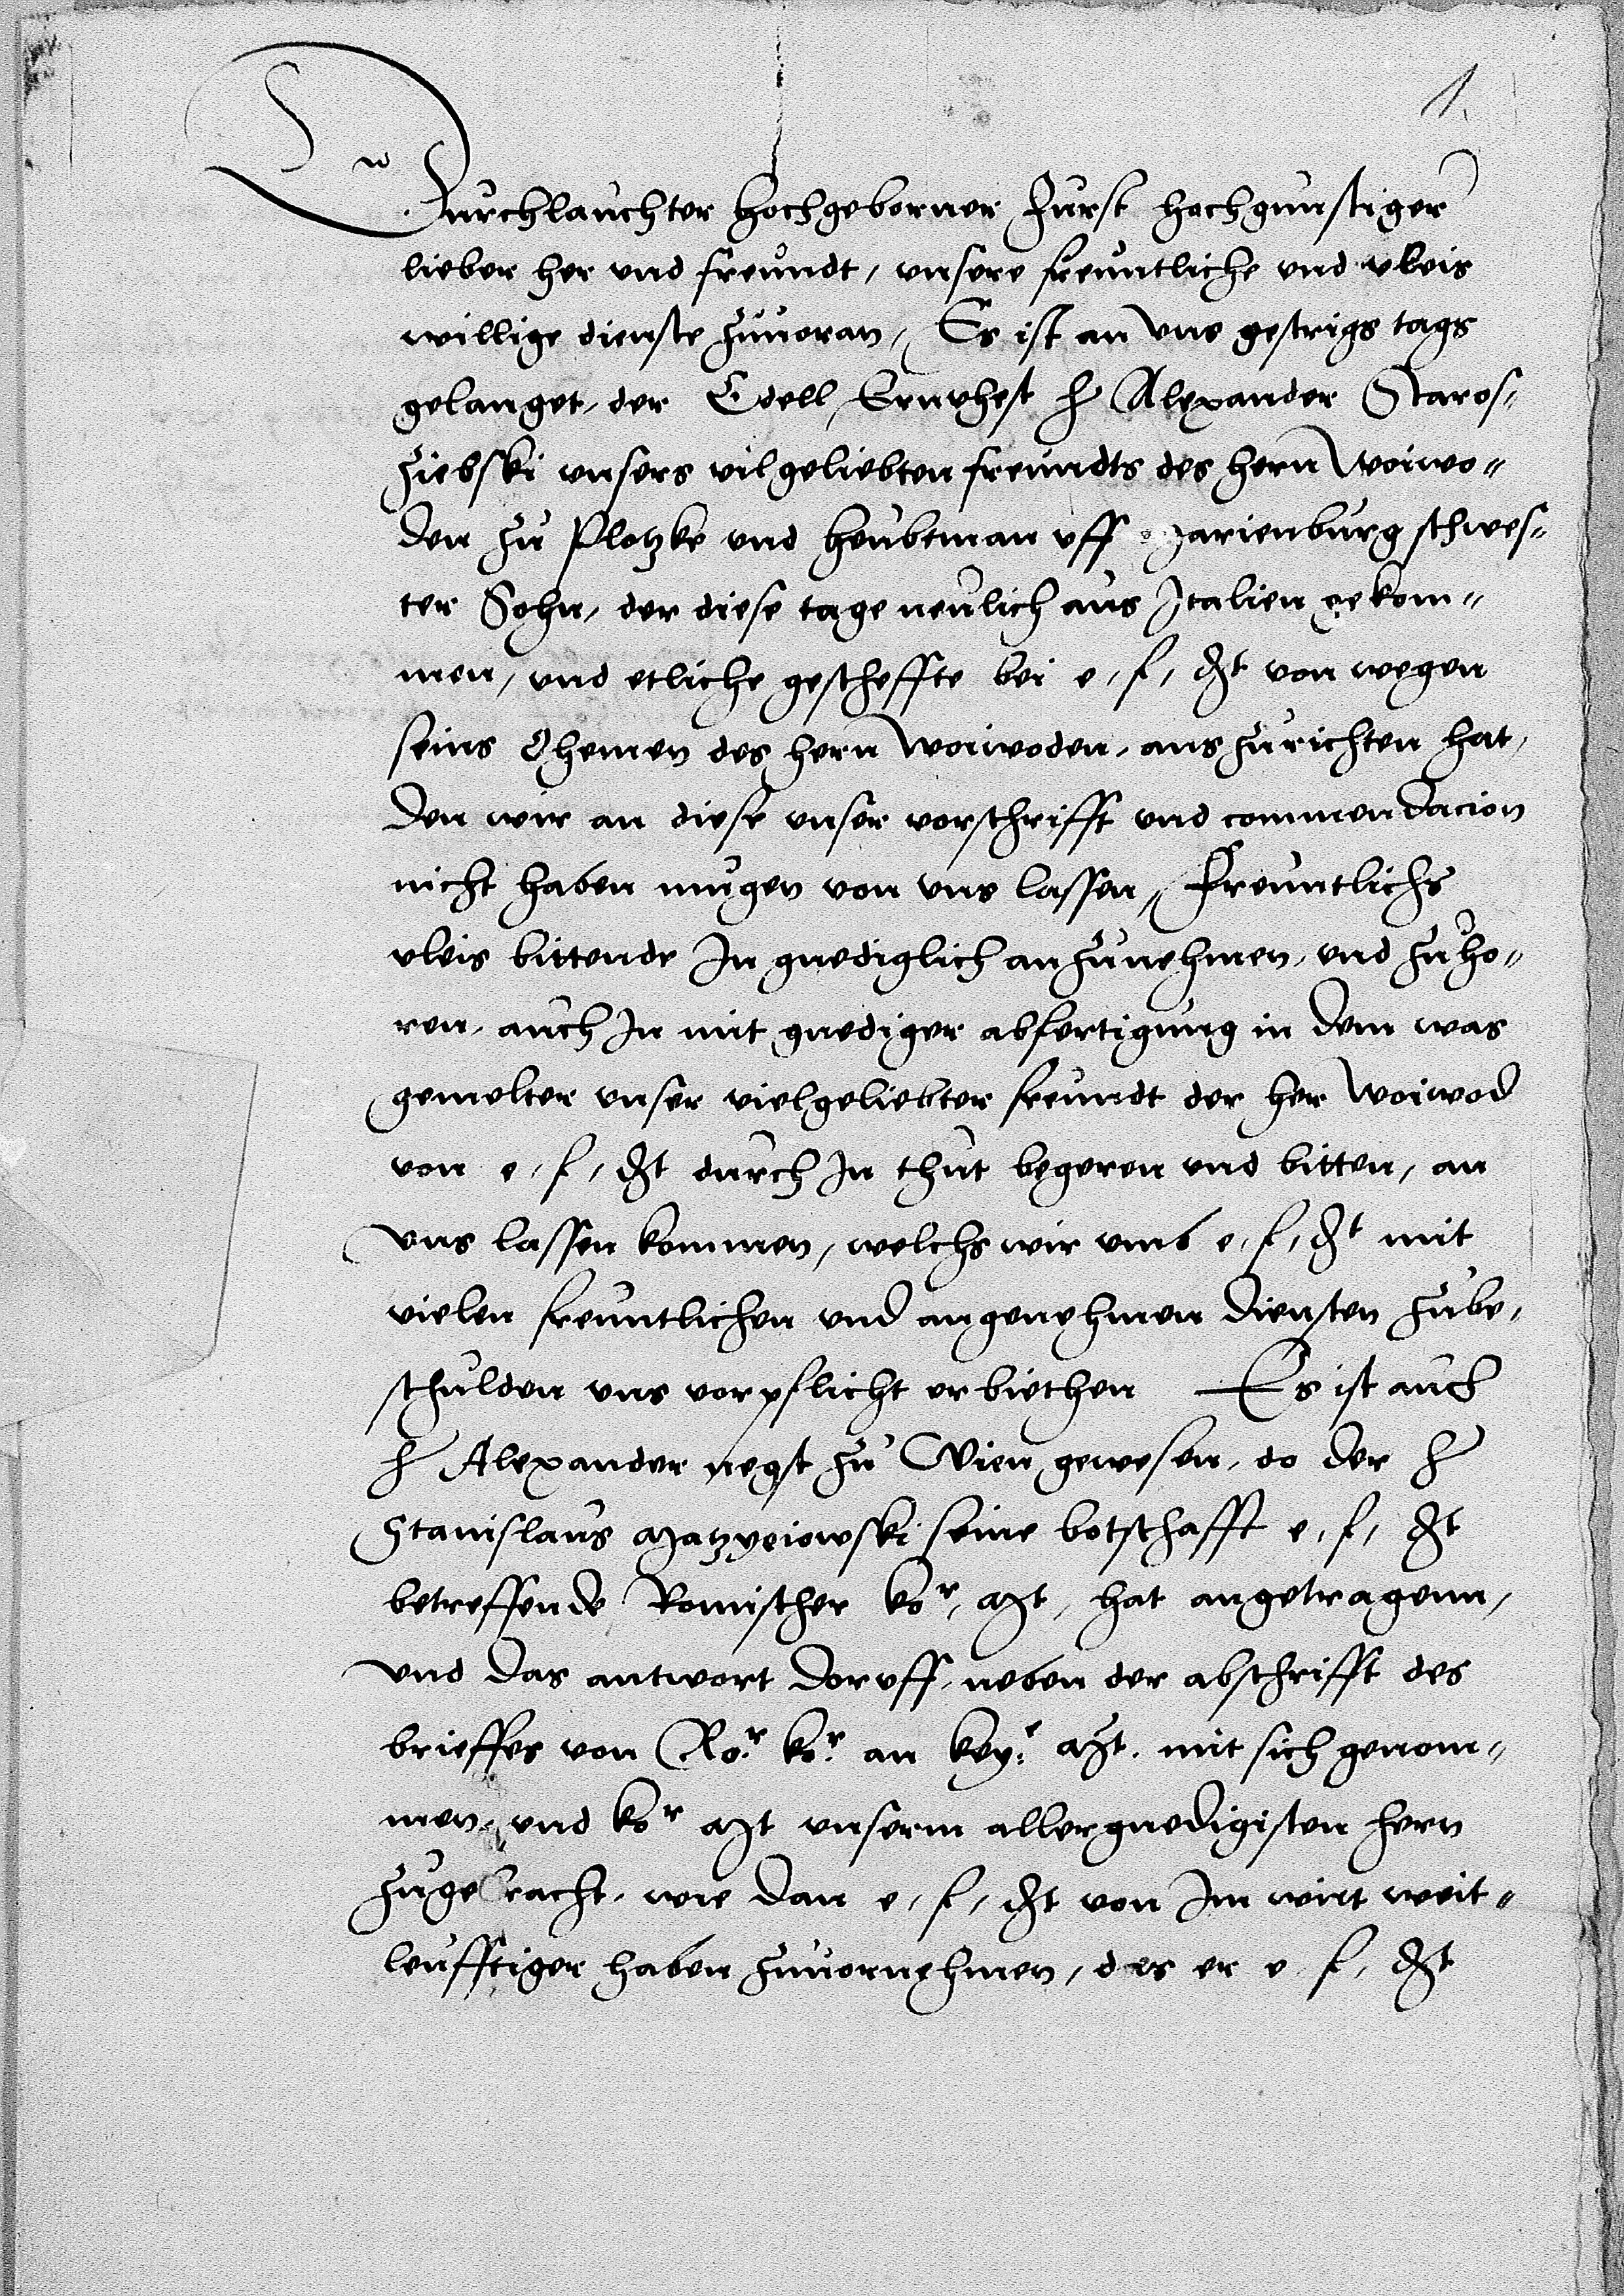 1.
Durchlauchter Hochgeborner Furst hochgunstiger
lieber her vnd freundt, vnsere freuntliche vnd vleis
willige dienste zuuoran, Es ist an vns gestrigs tags
gelanget, der Edell Ernvhest H Alexander Staros„
ziebski vnsers vilgeliebten freundts des hern Woiwo„
den zu Plotzke vnd heubtman vff Marienburg schwes„
ter Sohn, der diese tage neulich aus Italien gekom„
men, vnd etliche gescheffte bei e, f, dt von wegen
seins Ohemen des hern Woiwoden, auszurichten hat,
den wir an diese vnser vorschrifft vnd commendacion
nicht haben mugen von vns lassen, Freuntlichs
vleis bittende In gnediglich anzunehmen, vnd zuho„
ren, auch In mit gnediger abfertigung in dem was
gemelter vnser vielgeliebter freundt der her Woiwod
von e, f, dt durch In thut begeren vnd bitten, an
vns lassen kommen, welchs wir vmb e, f, dt mit
vielen freuntlichen vnd angenehmen diensten zube„
schulden vns vorpflicht erbiethen Es ist auch
H Alexander negst zu Wien gewesen, do der H
Stanislaus Matzyeiowski seine botschafft e, f, dt
betreffende Romischer kor, Mt, hat angetragenn,
vnd das antwort doruff, neben der abschrifft des
brieffes von Ro:r ko:r an key:r Mt. mit sich genom„
men, vnd kor Mt vnserm allergnedigisten hern
zugebracht, wie dan e, f, dt von Im wirt weit„
leufftiger haben zuuornehmen, des er e f, dt